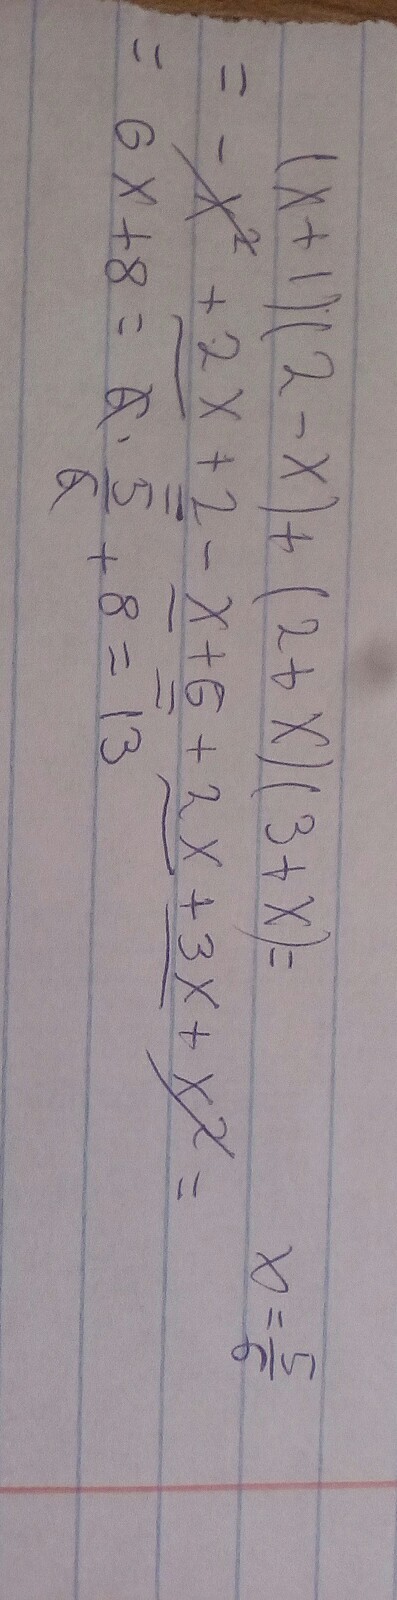 (x+1)(2-x)+(2+x)(3+x)= x=5/6
= -x²+2x+2-x+6+2x+3x+x²=
= 6x+8=6·5/6+8=13